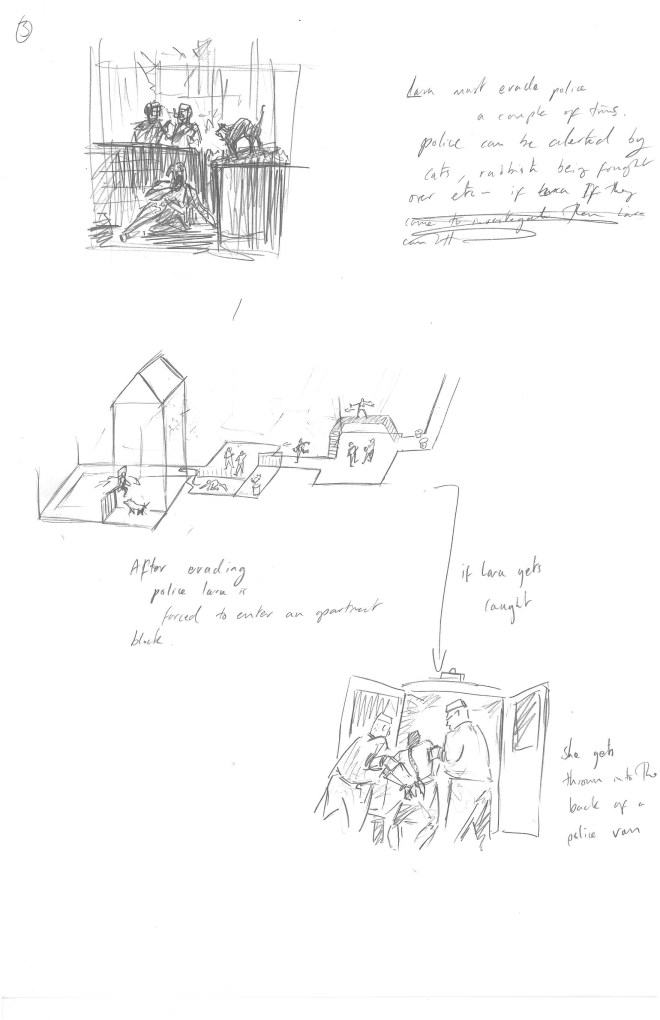 3
Lara must evade police
a couple of times.
police can be alerted by
cats, rubbish being fought
over etc – if Lara If they
come to investigate Then Lara
can
After evading
police lara is
forced to enter an apartment
block.
if Lara gets
caught
She gets
thrown into The
back of a
police van